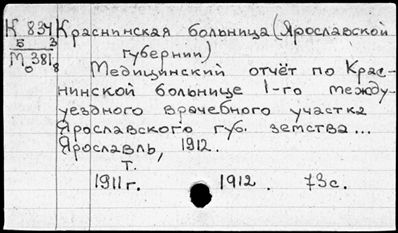 К 834 Краснинская больница (Ярославской
Б 3 губернии)
М₀ 381₈ Медицинский отчёт по Крас-
нинской больнице 1-го между-
уездного врачебного участка
Ярославского губ. земства...
Ярославль, 1912.
т.
1911 г. 1912. 73 с.